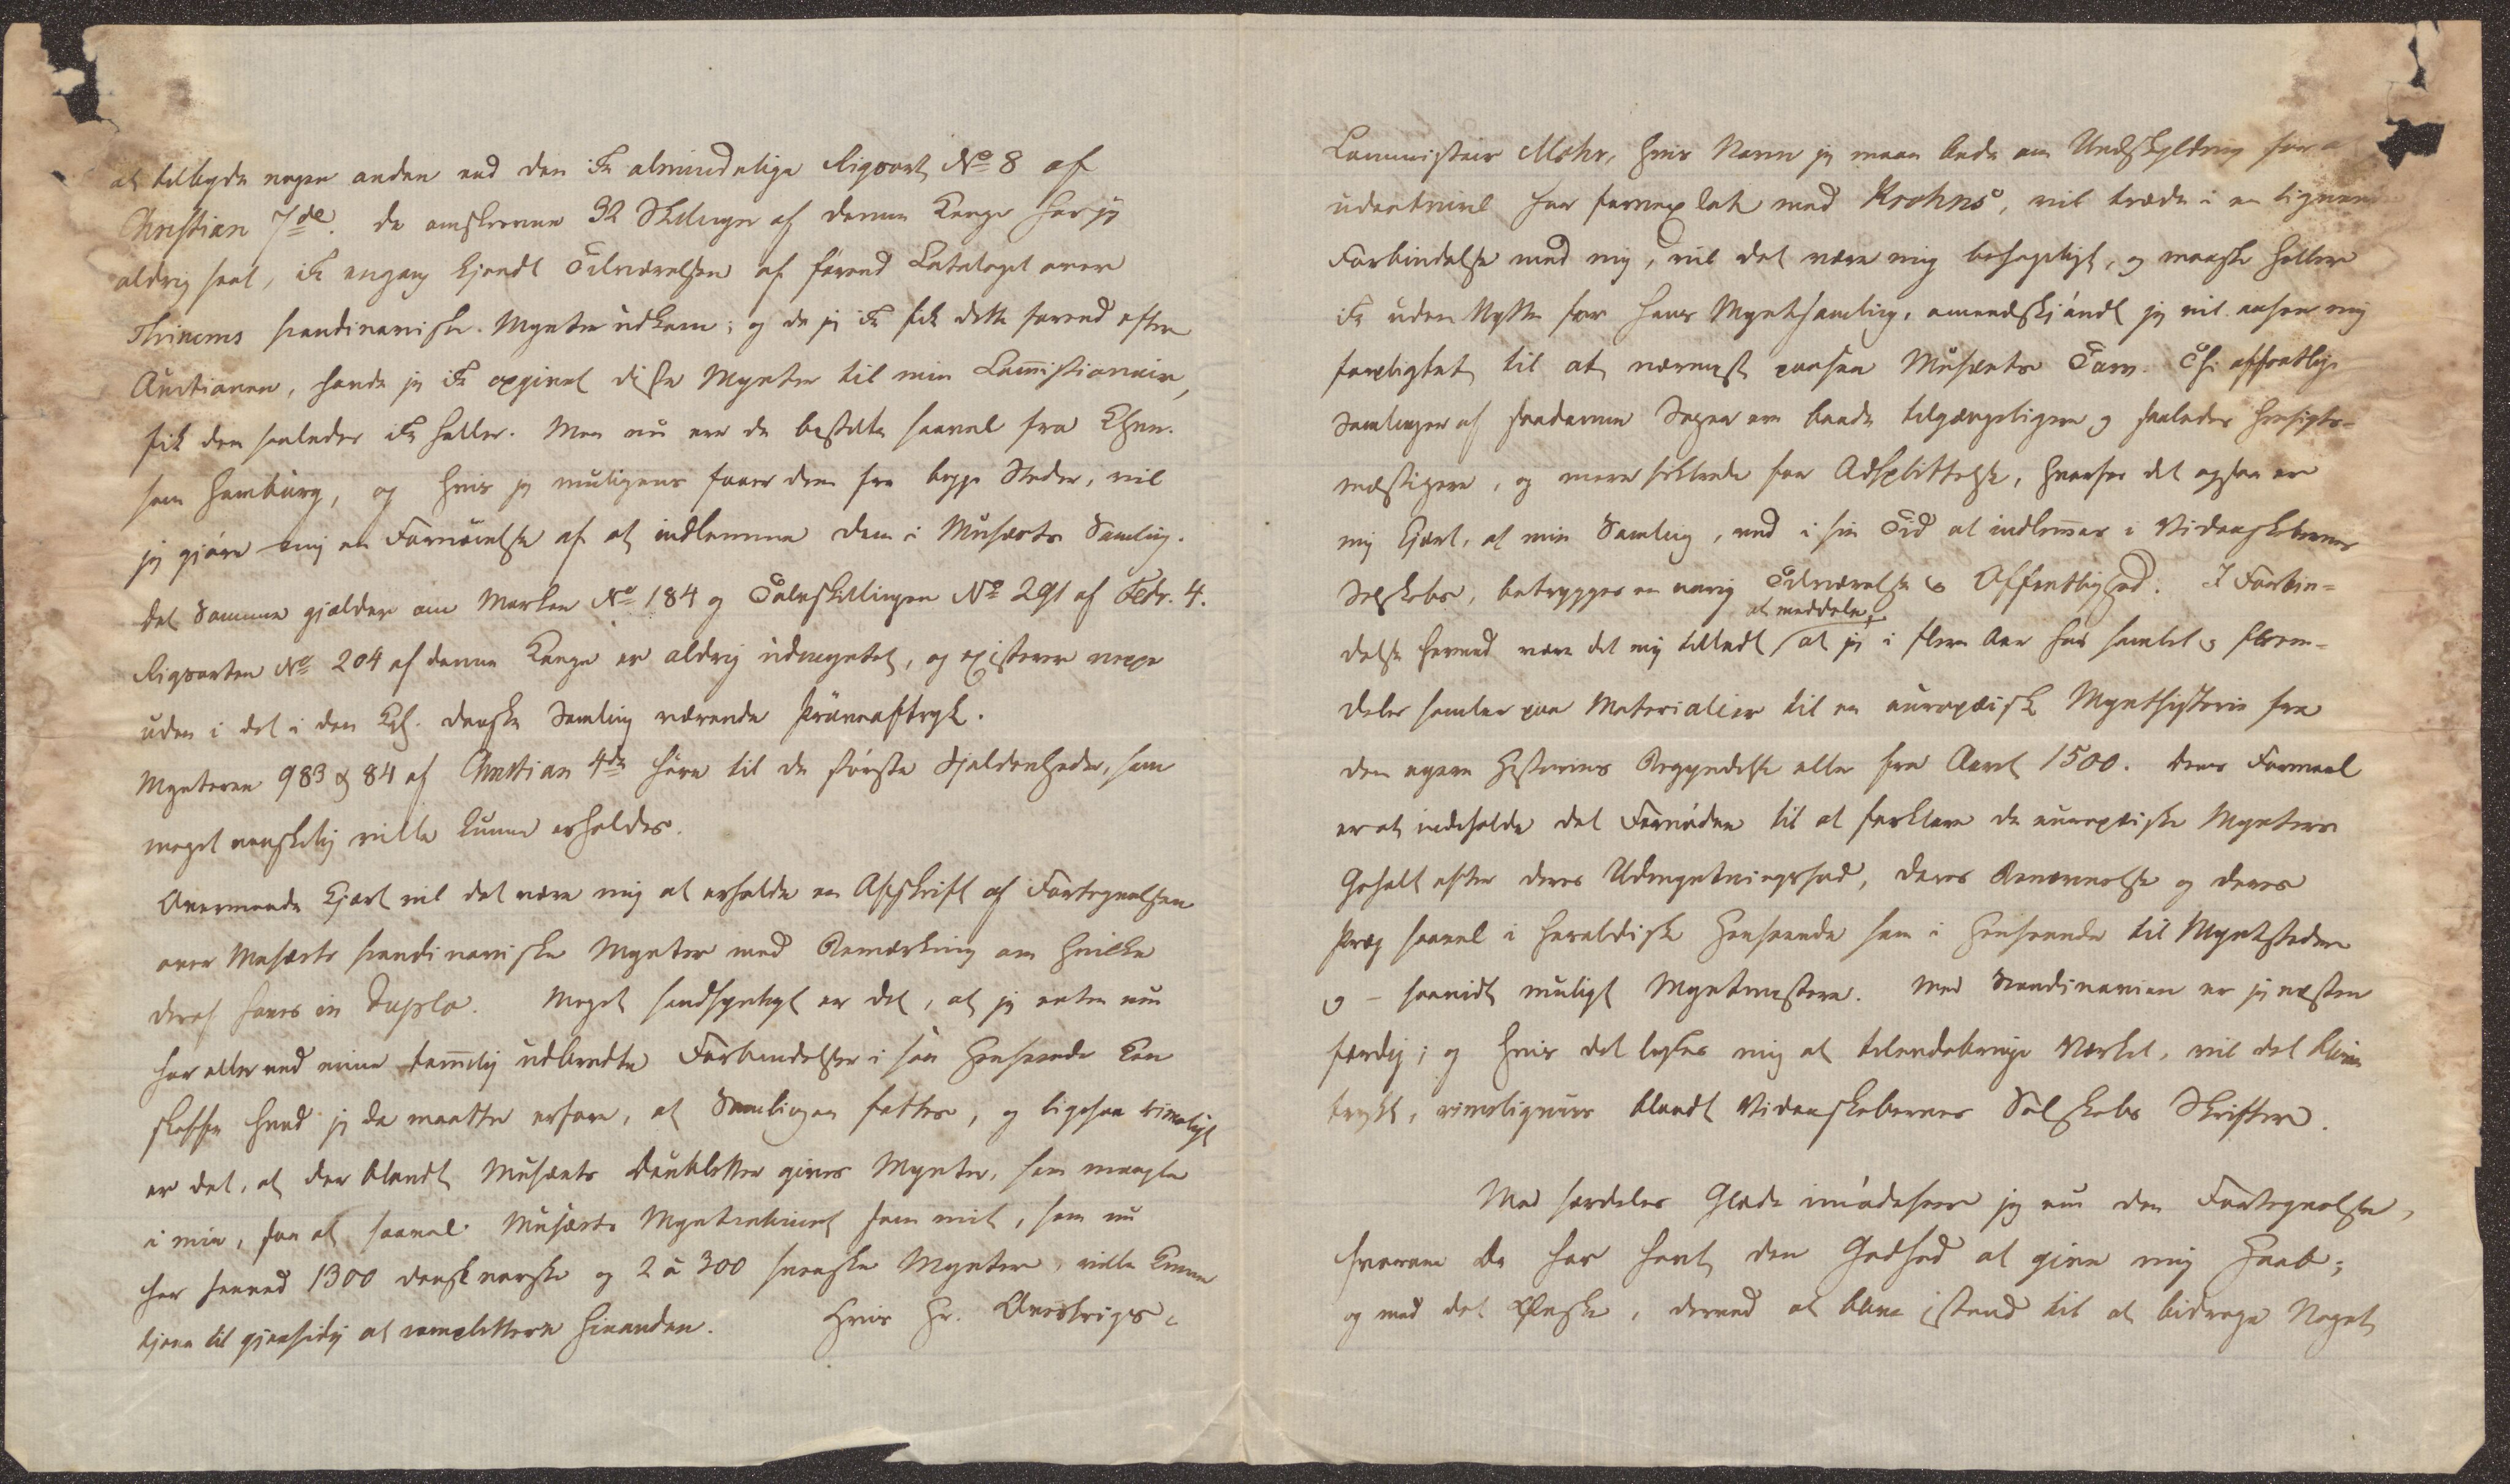 at tilbyde nogen anden end den ikke almindelige Rigsort No 8 af
Christian 7de. De omskrevne 32 Skillinger af denne Konge har jeg
aldrig seet, ikke engang kjendt Tilværelsen af førend Cataloget over
skandinaviske Mynter udkom; og da jeg ikke fik dette førend efter
Auctionen, havde jeg ikke opgivet disse Mynter til min Commissionair,
fik dem saaledes ikke heller. Men nu ere de bestilte saavel fra Khvn.
som Hamburg, og hvis jeg muligens faaer dem fra begge Steder, vil
jeg gjøre mig en Fornøielse af at indlemme dem i Musæets Samling.
Det Samme gjælder om Marken No 184 og Tolvskillingen No 291 af Fedr. 4.
Rigsorten No 204 af denne Konge er aldrig udmyntet, og existerer neppe
uden i det i den Kgl. danske Samling værende Prøveaftryk.
Mynterne 983 & 84 af Christian 4de høre til de største Sjeldenheder, som
meget vanskelig ville kunne erholdes.
Overmaade kjært vil det være mig at erholde en Afskrift af Fortegnelsen
over Musæets skandinaviske Mynter med Bemærkning om hvilke
deraf haves in Duplo. Meget sandsynligt er det, at jeg enten nu
har eller ved mine temmelig udbredte Forbindelser i saa Henseende kan
skaffe hvad jeg da maatte erfare, at Samlingen fattes, og ligesaa rimeligt
er det, at der blandt Musæets Doubletter gives Mynter, som mangle
i min, saa at saavel Musæets Myntcabinet som mit, som nu
har henved 1300 dansknorske og 2 à 300 svenske Mynter, ville kunne
tjene til gjensidig at complettere hinanden. Hvis Hr. Overkrigs-
Commissair Mohr, hvis Navn jeg maa bede om Undskyldning for at
udentvivl har forvexlet med Krohns, vil træde i en lignende
Forbindelse med mig, vil det være mig behageligt, og maaske heller
ikke uden Nytte for hans Myntsamling, omendskjøndt jeg vil ansee mig
forpligtet til at nærmest paasee Musæets Tarv. Thi offentlige
Samlinger af saadanne Sager ere baade tilgjængeligere og saaledes hensigts-
mæssigere, og mere sikkrede for Adsplittelse, hvorfor det ogsaa er
mig kjært, at min Samling, ved i sin Tid at indlemmes i Videnskabernes
Selskabs, betrygges en varig Tilværelse og Offentlighed. I Forbin-
at meddele,
delse hermed være det mig tilladt at jeg i flere Aar har samlet og frem-
deles samler paa Materialier til en europæisk Mynthistorie fra
den nyere Histories Begyndelse eller fra Aaret 1500. Dens Formaal
er at indeholde det Fornødne til at forklare de europæiske Mynters
Gehalt efter deres Udmyntningsfod, deres Benævnelse og deres
Præg saavel i heraldisk Henseende som i Henseende til Myntstedene
og – saavidt muligt Myntmestere. Med Scandinavien er jeg næsten
færdig; og hvis det lykkes mig at tilendebringe Værket, vil det blive
trykt, rimeligviis blandt Videnskabernes Selskabs Skrifter.
Med særdeles Glæde imødeseer jeg nu den Fortegnelse,
hvorom De har havt den Godhed at give mig Haab;
og med det Ønske, derved at blive istand til at bidrage Noget